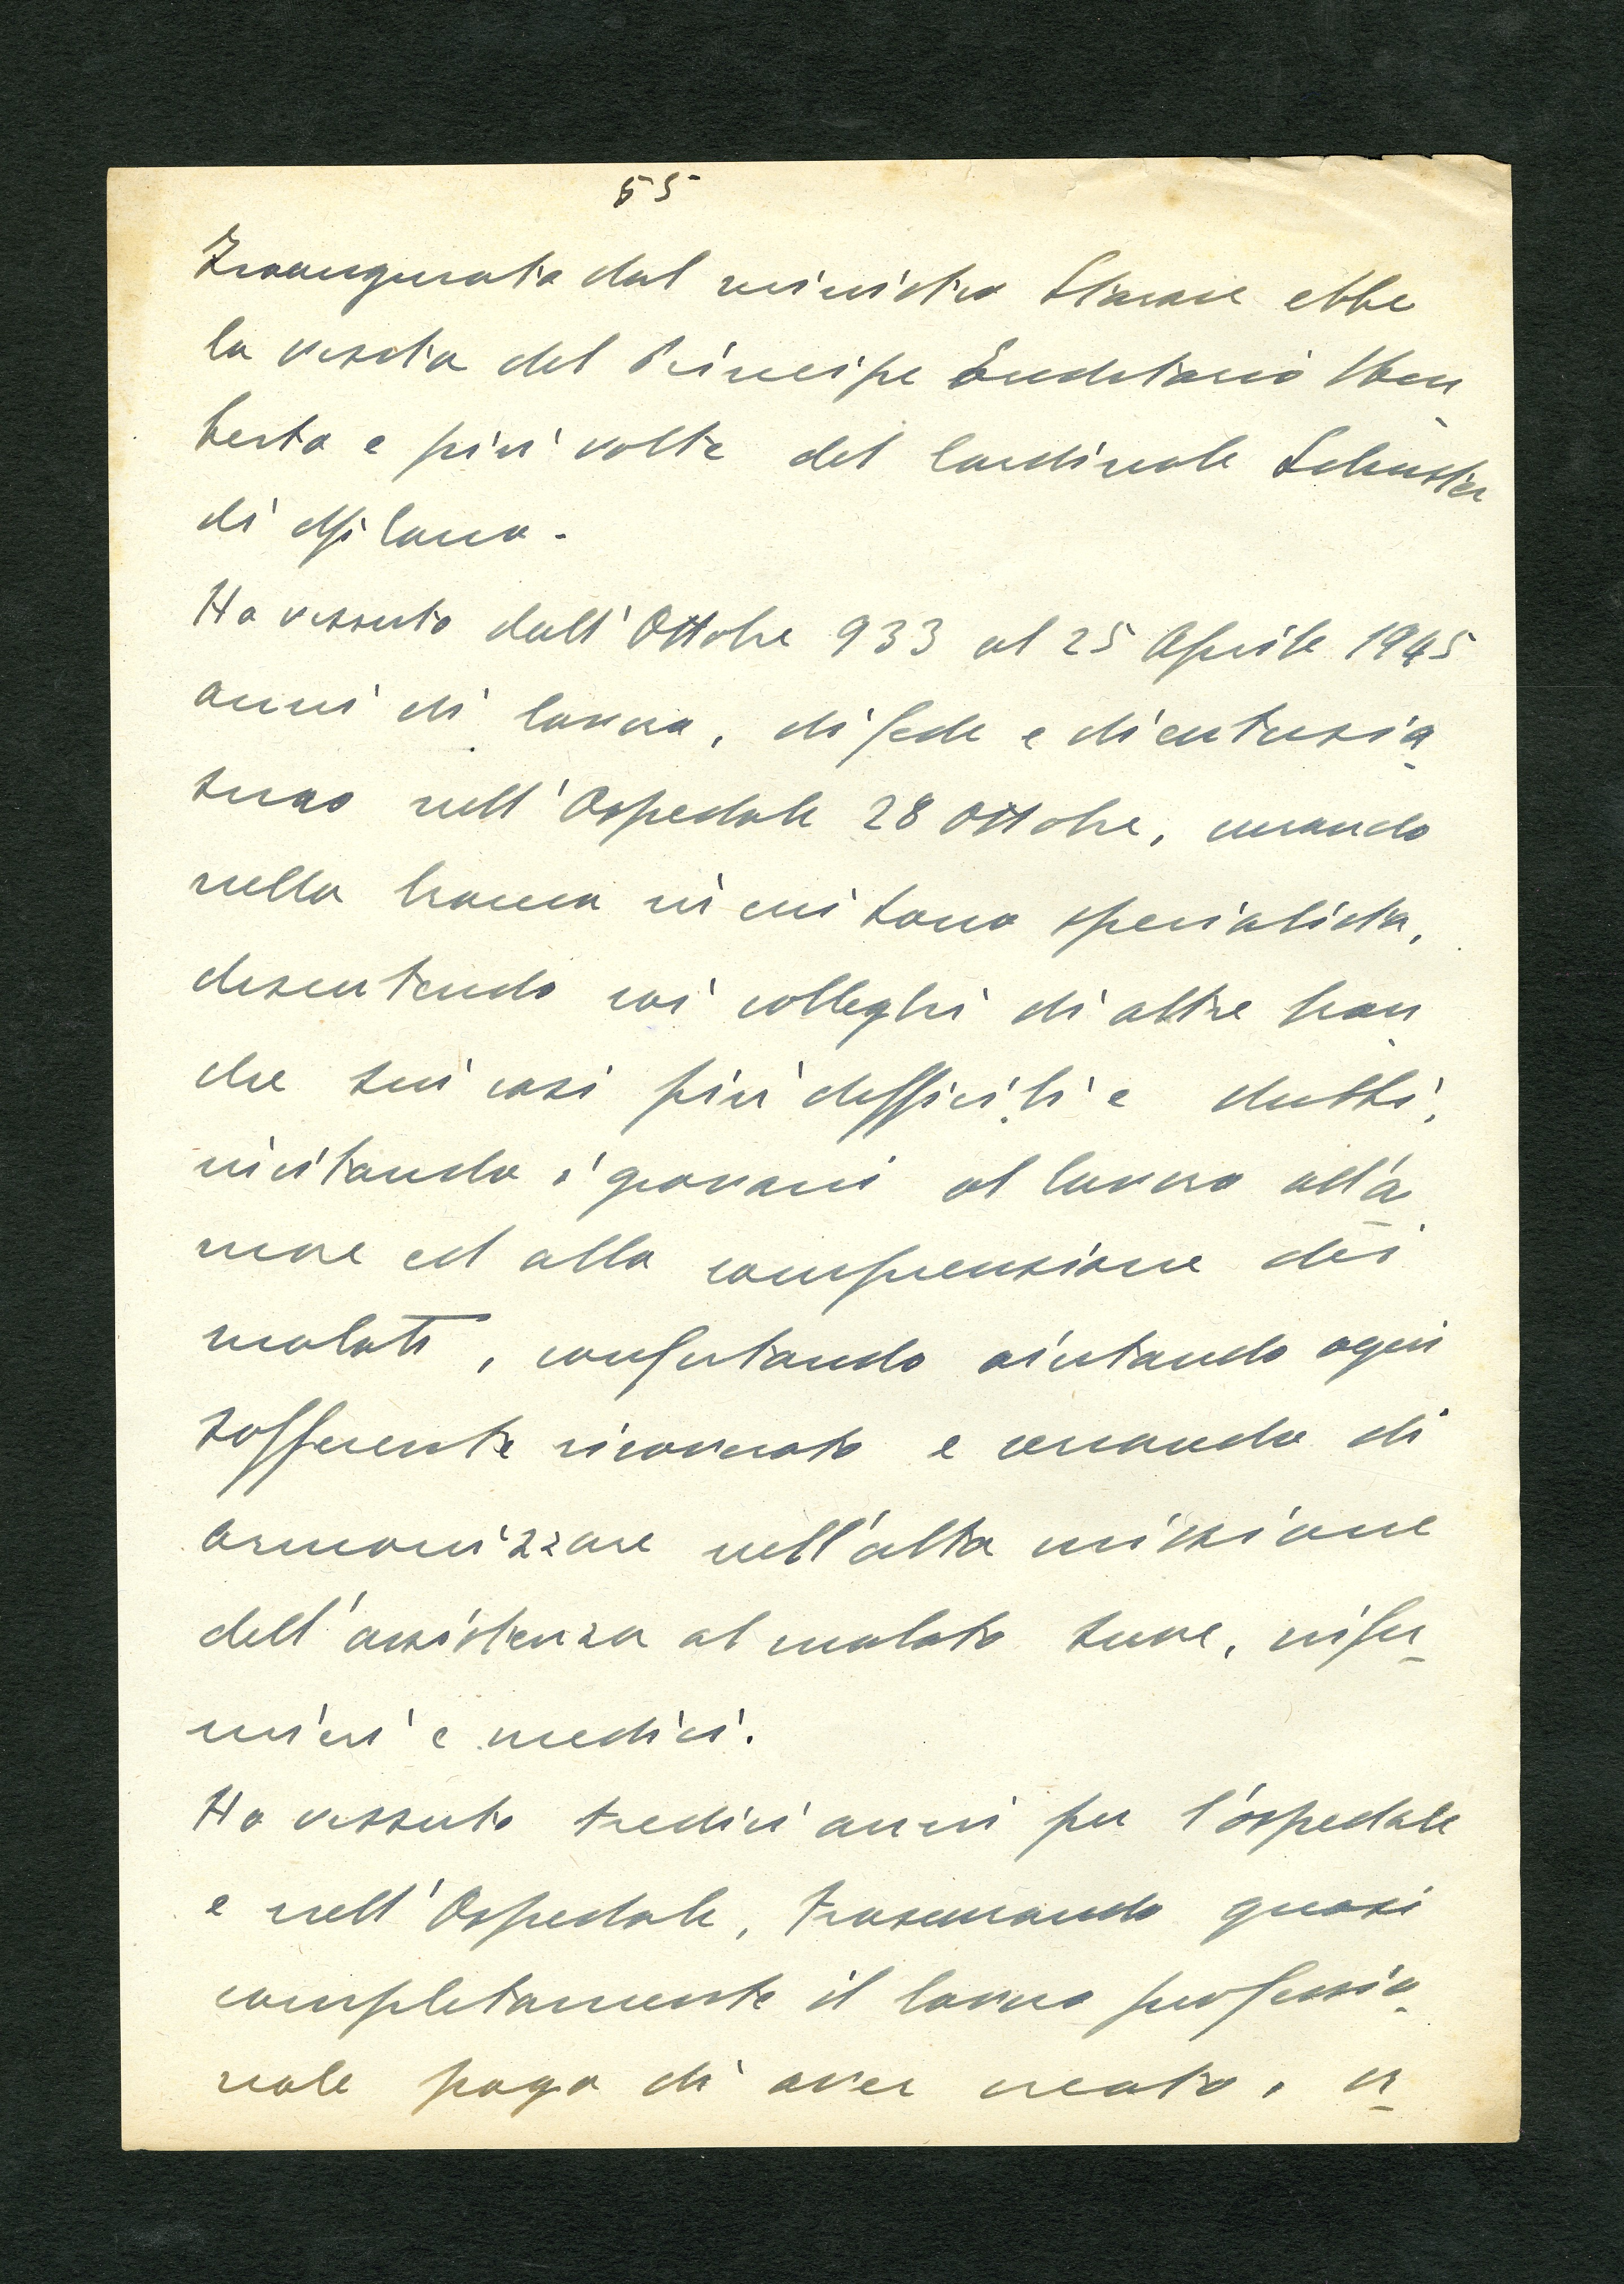 55
Inaugurata dal ministro Starace ebbe
la visita del Principe Ereditario Um
berto e più volte del Cardinale Schuster
di Milano.
Ho vissuto dall'Ottobre 933 al 25 Aprile 1945
anni di lavoro, di fede e di entusia
smo nell'Ospedale 28 Ottobre, curando
nella branca in cui sono specialista,
discutendo coi colleghi di altre bran
che sui casi più difficili e dubbi,
incitando i giovani al lavoro all'a
more ed alla comprensione dei
malati, confortando aiutando ogni
sofferente ricoverato e cercando di
armonizzare nell'alta missione
dell'assistenza al malato suore, infer
mieri e medici.
Ho vissuto tredici anni per l'ospedale
e nell'Ospedale, trascurando quasi
completamente il lavoro professio
nale pago di aver creato, or